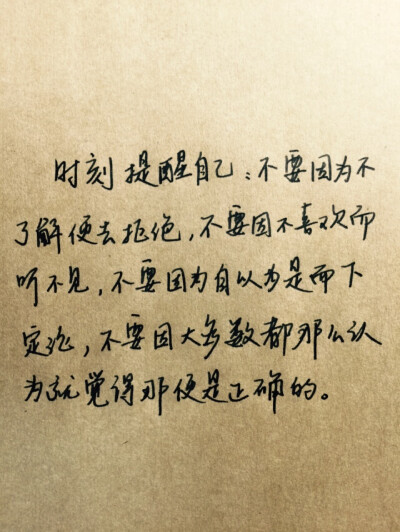 时刻提醒自己：不要因为不
了解便去拒绝，不要因不喜欢而
听不见，不要因为自以为是而下
定论，不要因大多数都那么认
为就觉得那便是正确的。